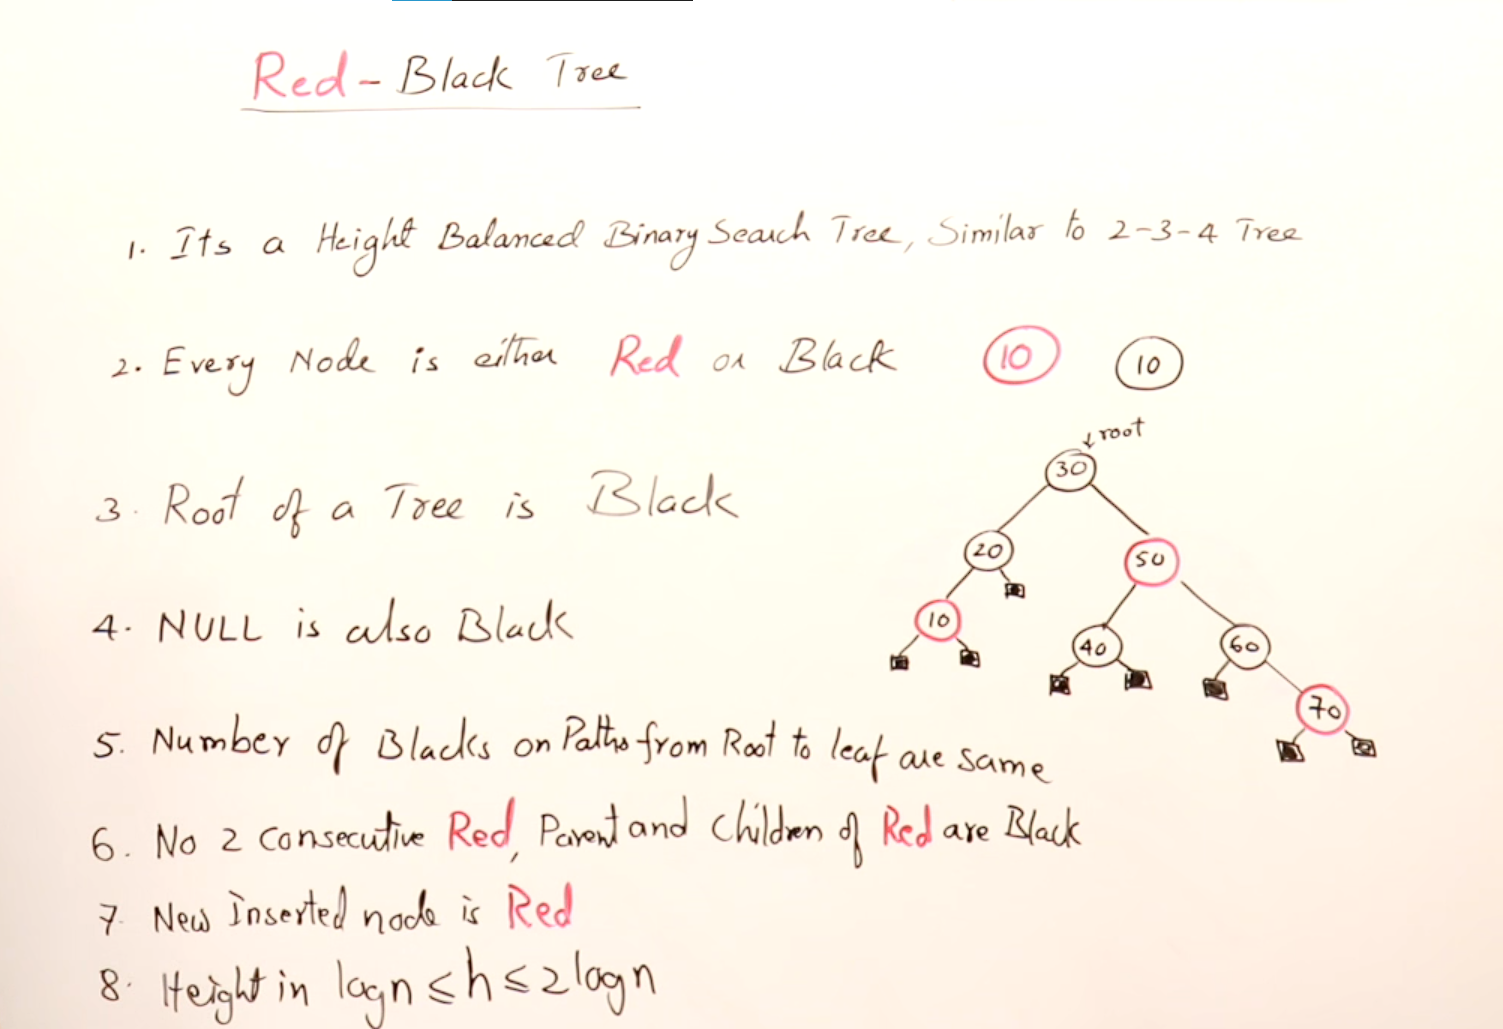 Red - Black Tree
1. Its a Height Balanced Binary Search Tree, Similar to 2-3-4 Tree
2. Every Node is either Red or Black 10 10
root
30
3. Root of a Tree is Black
20 50
10 40 60
4. NULL is also Black
70
5. Number of Blacks on Paths from Root to leaf are same
6. No 2 consecutive Red, Parent and Children of Red are Black
7. New Inserted node is Red
8. Height in logn ≤ h ≤ 2logn